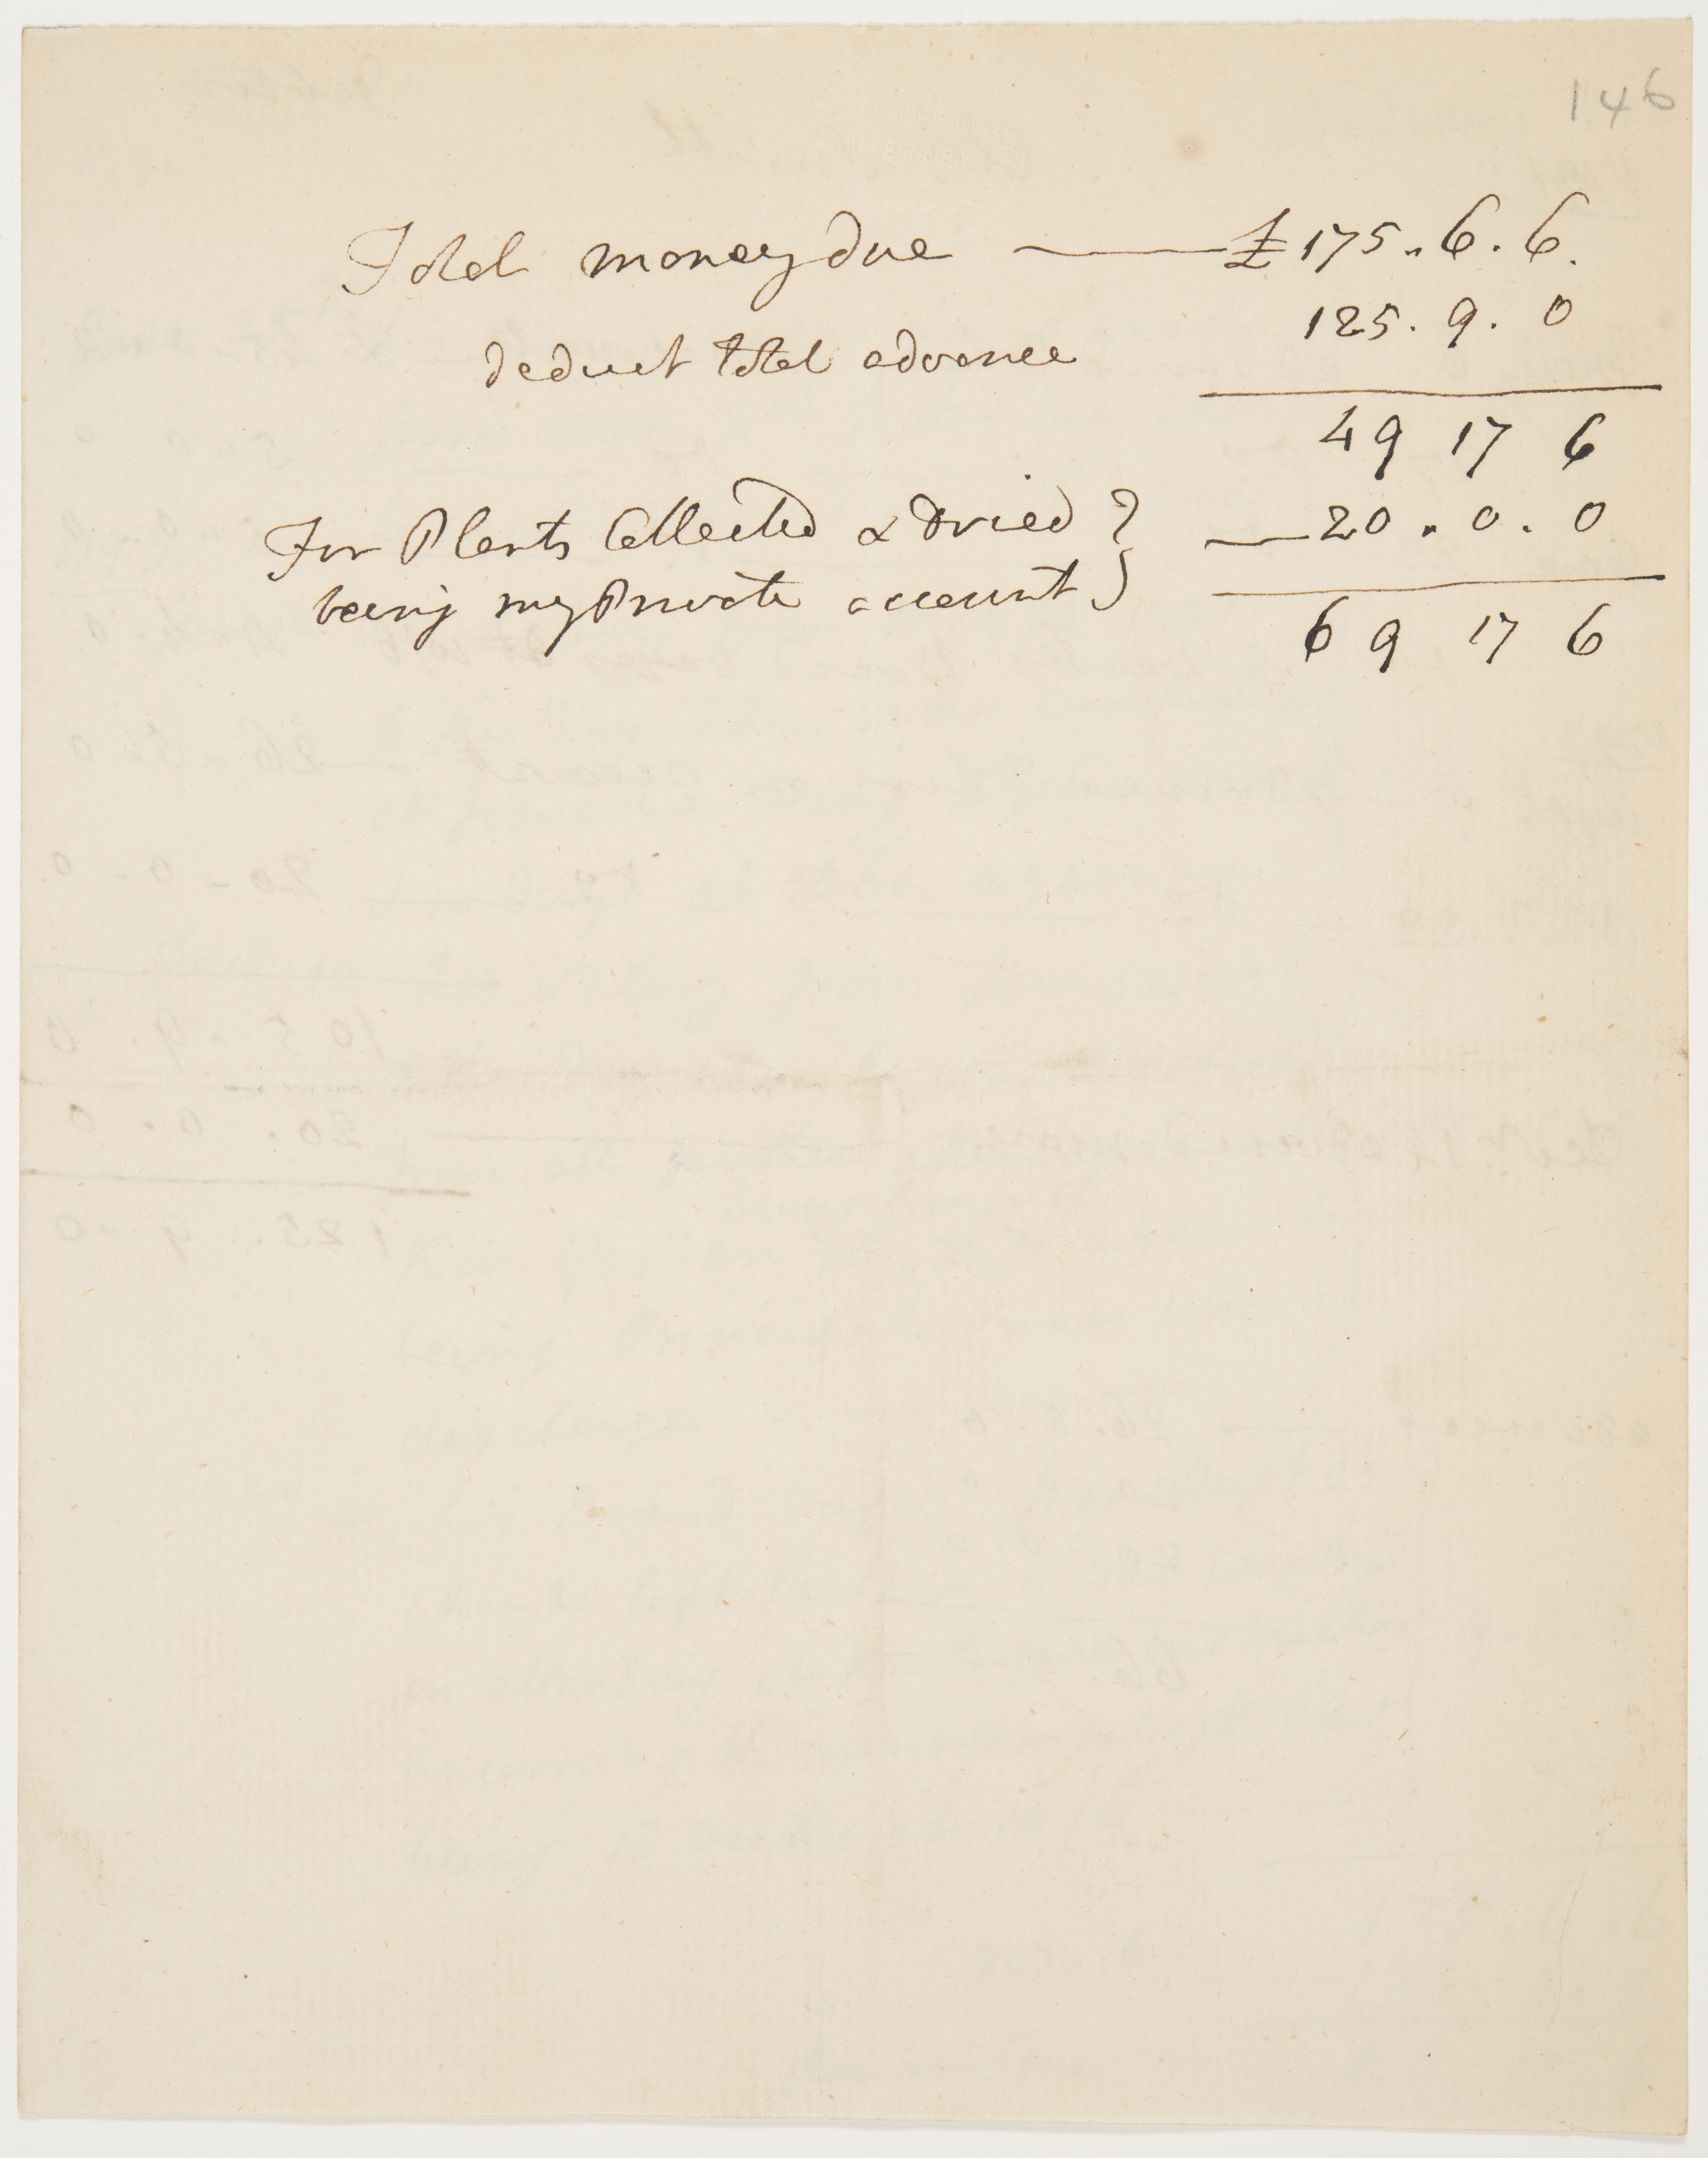 146
Total money due — £175.6.6.
deduct total advance 125.9.0
49 17 6
For Plants Collected & Dried } — 20.0.0
being my Private account }
69 17 6